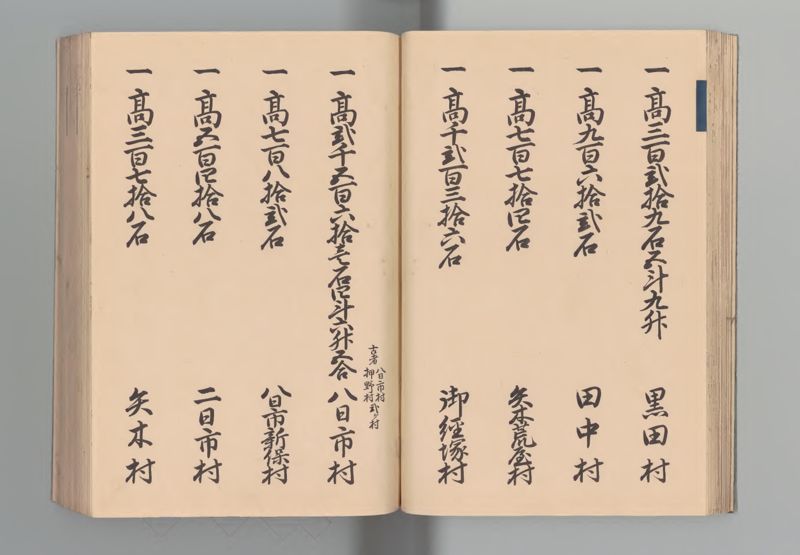 一 高三百弐拾九石五斗九升 黒田村
一 高九百六拾弐石 田中村
一 高七百七拾四石 矢木荒屋村
一 高千弐百三拾六石 御経塚村
古者 八日市村 押野村 弐ヶ村
一 高弐千五百六拾壱石四斗六升五合 八日市村
一 高七百八拾弐石 八日市新保村
一 高五百四拾八石 二日市村
一 高三百七拾八石 矢木村